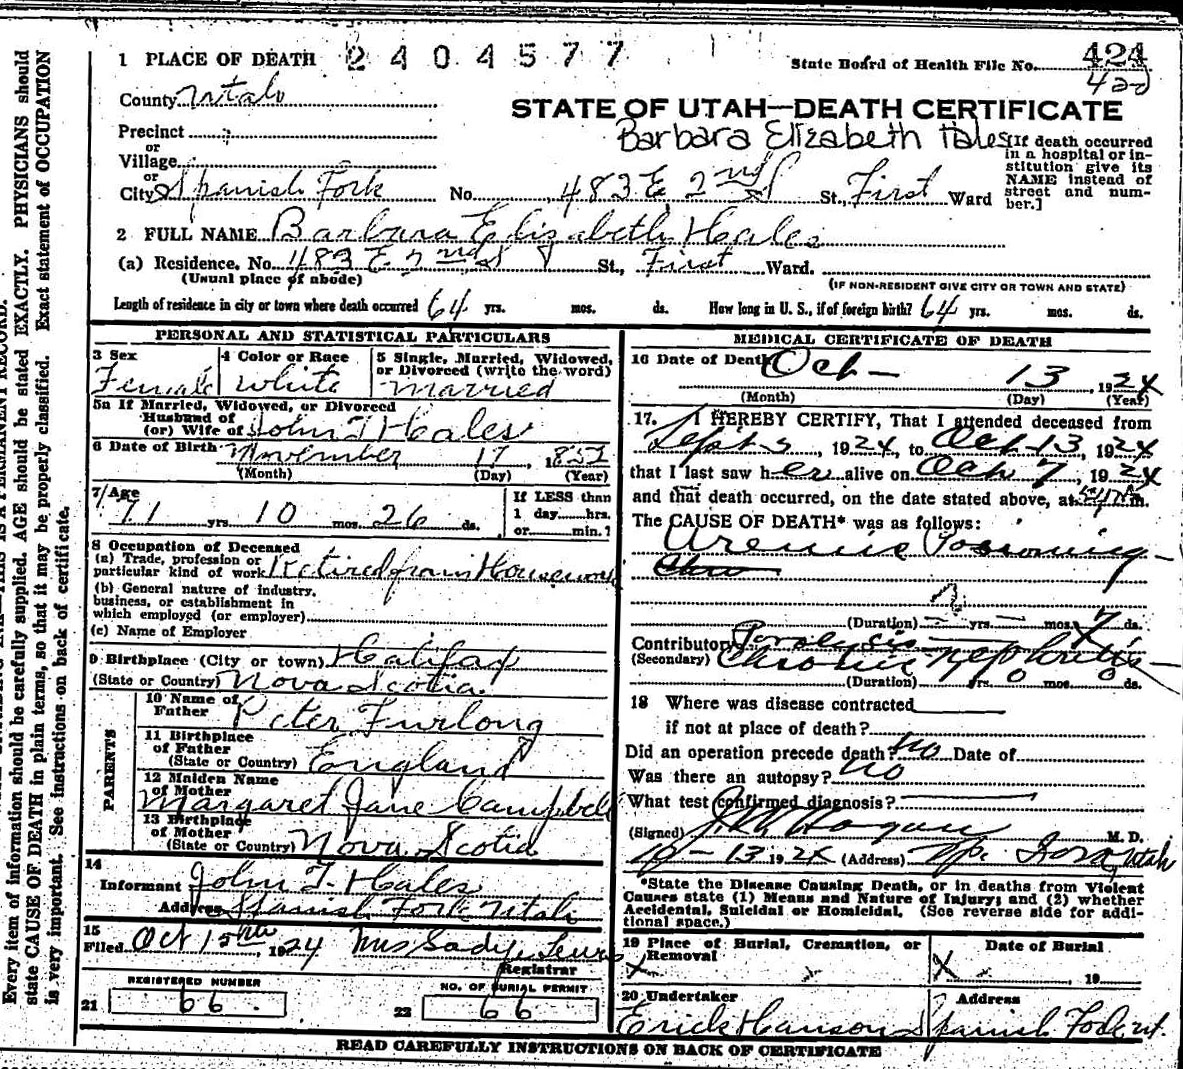 1 PLACE OF DEATH 2404577
State Board of Health File No. 424
420
County Utah
STATE OF UTAH—DEATH CERTIFICATE
Precinct
Barbara Elizabeth Hales
or
Village
or
City Spanish Fork No. 483 E 2nd S St., First Ward
[If death occurred
in a hospital or in-
stitution give its
NAME instead of
street and num-
ber.]
2 FULL NAME Barbara Elizabeth Hales
(a) Residence. No. 483 E 2nd S St., First Ward.
(Usual place of abode) (IF NON-RESIDENT GIVE CITY OR TOWN AND STATE)
Length of residence in city or town where death occurred 64 yrs. mos. ds. How long in U. S., if of foreign birth? 64 yrs. mos. ds.
PERSONAL AND STATISTICAL PARTICULARS
3 Sex
Female
4 Color or Race
White
5 Single, Married, Widowed,
or Divorced (write the word)
Married
5a If Married, Widowed, or Divorced
Husband of
(or) Wife of John T Hales
6 Date of Birth November 17, 1852
(Month) (Day) (Year)
7 Age
71 yrs 10 mos. 26 ds.
If LESS than
1 day hrs.
or min.?
8 Occupation of Deceased
(a) Trade, profession or
particular kind of work Retired from Housework
(b) General nature of industry,
business, or establishment in
which employed (or employer)
(c) Name of Employer
9 Birthplace (City or town) Halifax
(State or Country) Nova Scotia.
PARENTS
10 Name of
Father Peter Furlong
11 Birthplace
of Father
(State or Country) England
12 Maiden Name
of Mother
Margaret Jane Campbell
13 Birthplace
of Mother
(State or Country) Nova Scotia
14
Informant John T. Hales
Address Spanish Fork Utah
15
Filed Oct 15th, 1924 Mrs Sady Lewis
Registrar
REGISTERED NUMBER
21 66.
NO. OF BURIAL PERMIT
22 66
MEDICAL CERTIFICATE OF DEATH
16 Date of Death Oct— 13, 1924
(Month) (Day) (Year)
17. I HEREBY CERTIFY, That I attended deceased from
Sept, 1924, to Oct-13, 1924
that I last saw her alive on Oct 7, 1924
and that death occurred, on the date stated above, at m.
The CAUSE OF DEATH* was as follows:
Uremic Poisoning—
Chro
(Duration) — yrs. — mos. 7 ds.
Contributory
(Secondary) Chronic Nephritis—
(Duration) yrs. 0 mos. 0 ds.
18 Where was disease contracted
if not at place of death?
Did an operation precede death? No Date of
Was there an autopsy? No
What test confirmed diagnosis?
(Signed) Hagan M. D.
10-13 1924 (Address) Sp. Fork, Utah
*State the Disease Causing Death, or in deaths from Violent
Causes state (1) Means and Nature of Injury; and (2) whether
Accidental, Suicidal or Homicidal. (See reverse side for addi-
tional space.)
19 Place of Burial, Cremation, or
Removal
X
Date of Burial
X 19
20 Undertaker
Erick Hanson
Address
Spanish Fork ut.
READ CAREFULLY INSTRUCTIONS ON BACK OF CERTIFICATE
THIS IS A PERMANENT RECORD.
Every item of information should be carefully supplied. AGE should be stated EXACTLY. PHYSICIANS should
state CAUSE OF DEATH in plain terms, so that it may be properly classified. Exact statement of OCCUPATION
is very important. See instructions on back of certificate.